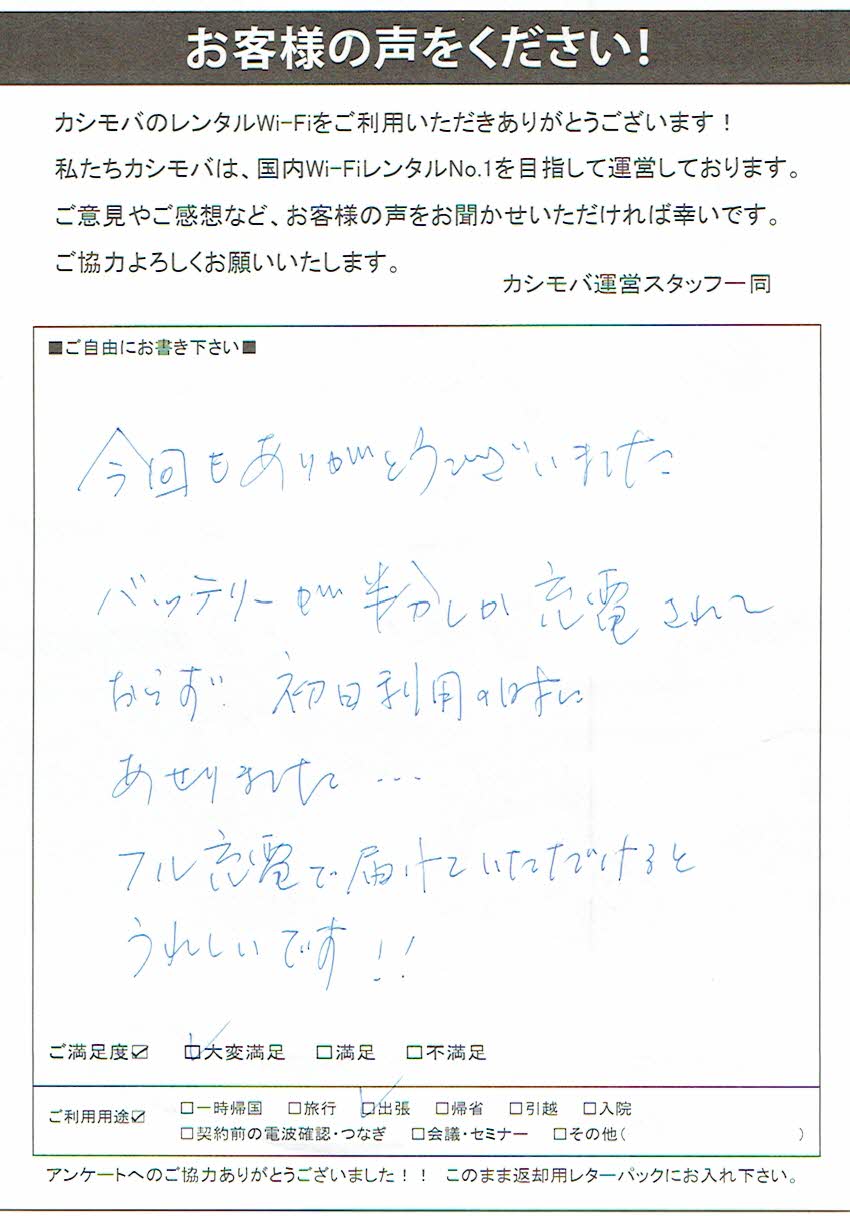 お客様の声をください!
カシモバのレンタルWi-Fiをご利用いただきありがとうございます！
私たちカシモバは、国内Wi-FiレンタルNo.1を目指して運営しております。
ご意見やご感想など、お客様の声をお聞かせいただければ幸いです。
ご協力よろしくお願いいたします。
カシモバ運営スタッフ一同
■ご自由にお書き下さい■
今回もありがとうございました
バッテリーが半分しか充電されて
おらず、初日利用の時に
あせりました…
フル充電で届けていただけると
うれしいです!!
ご満足度☑ ☑大変満足 □満足 □不満足
ご利用用途☑ □一時帰国 □旅行 ☑出張 □帰省 □引越 □入院
□契約前の電波確認・つなぎ □会議・セミナー □その他( )
アンケートへのご協力ありがとうございました！！ このまま返却用レターパックにお入れ下さい。